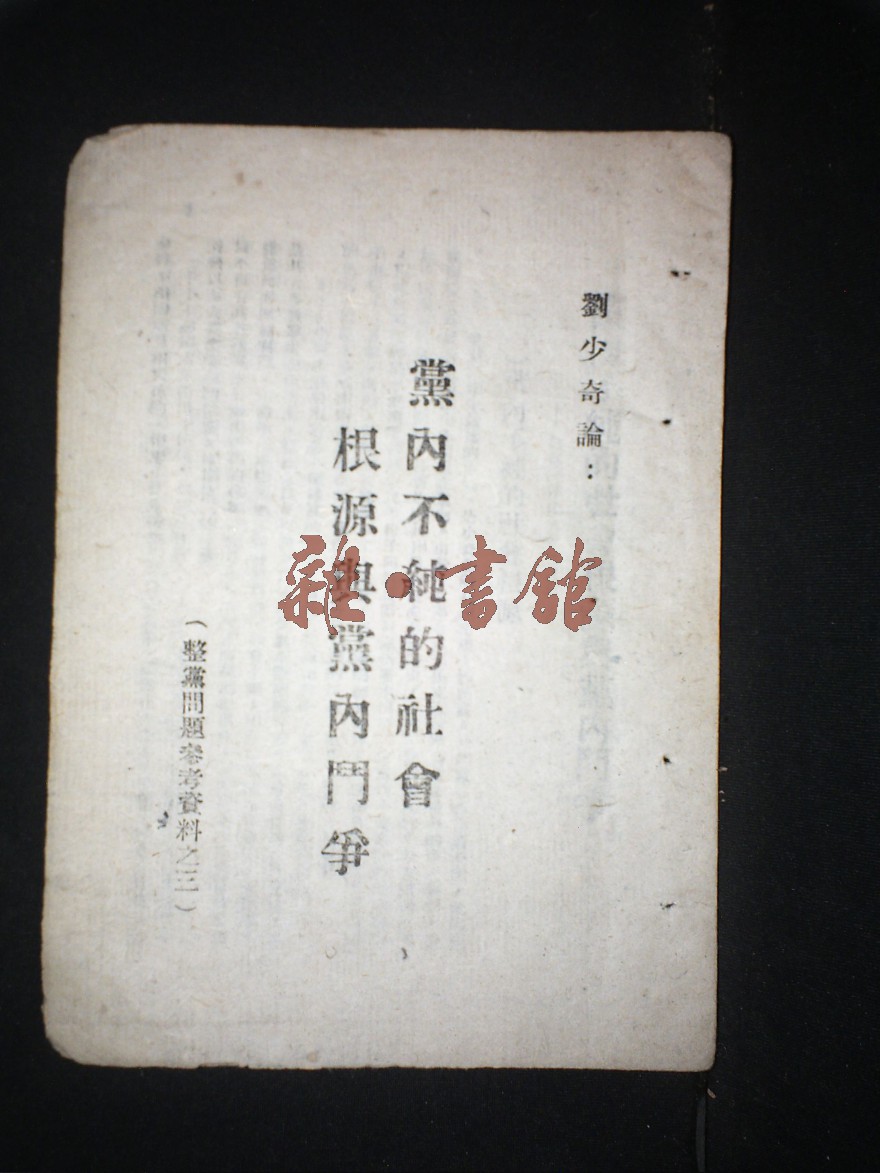 劉少奇論：
黨內不純的社會
根源與黨內鬥爭
（整黨問題參考資料之三）
雜·書館